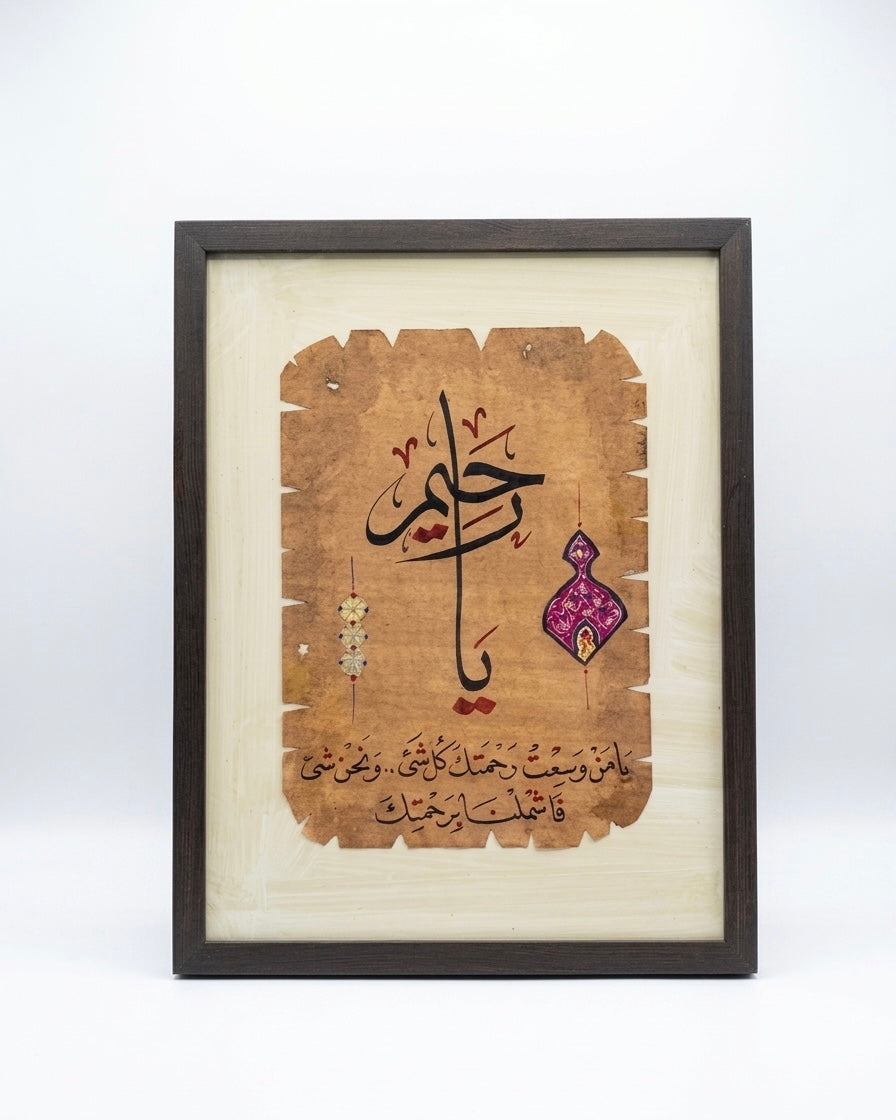 يا رحيم
يَا مَنْ وَسِعَتْ رَحْمَتكَ كُل شَئ .. وَنَحْنُ شئ
فَاشْمِلْنَا بِرَحْمَتِكَ